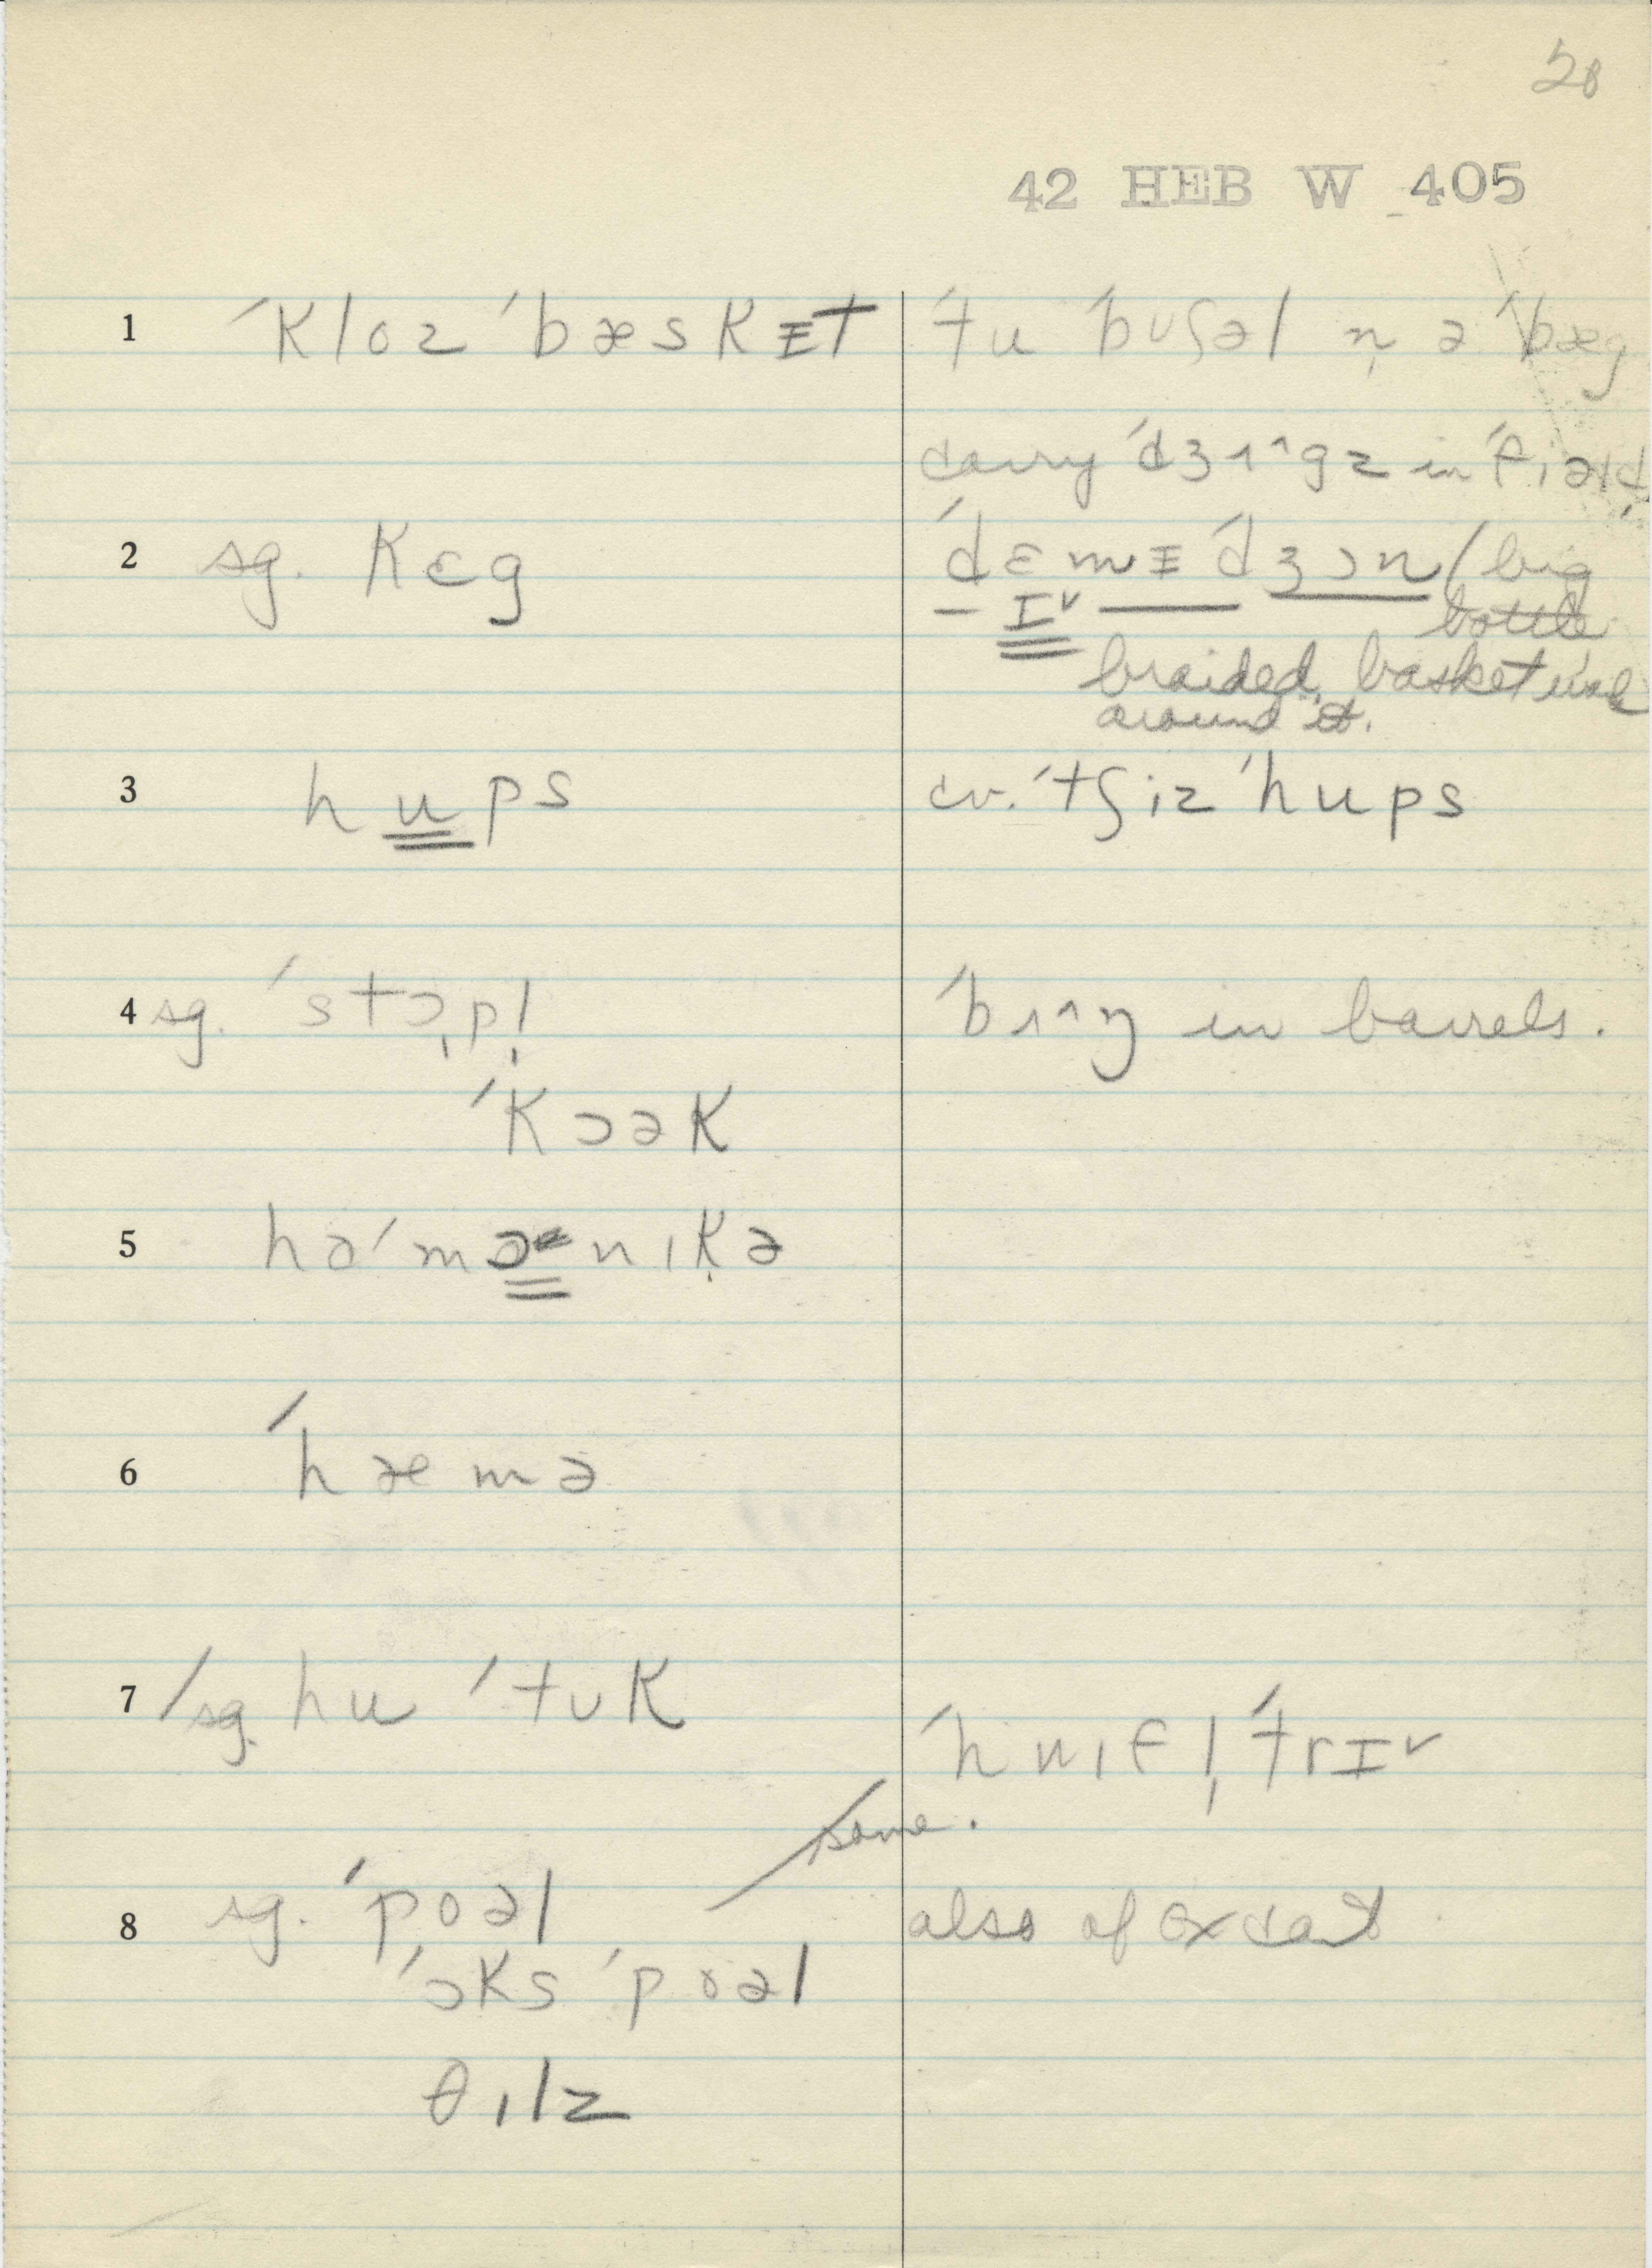 28
42 HEB W 405
1 ˈkloz ˈbæskɪ̵t ˈtu ˈbʊʃəl n̩ ə ˈbæg
carry ˈdʒɪ^gz in ˈfiəld
2 sg. kɛg ˈdɛmɪ̵ ˈdʒɔn / big
ɪ˅ bottle
braided, basket
around it.
3 hups cv. ˈtʃiz ˈhups
4 sg. ˈstɔpl̩ ˈbɪ^ŋ in barrels.
ˈkɔək
5 həˈmɒnikə
6 ˈhæmə
7 / sg. hu ˈtʊk ˈhwifl̩ ˈtrɪ˅
same.
8 sg. ˈpoəl also of oxcart
ˈɔks ˈpoəl
θɪlz